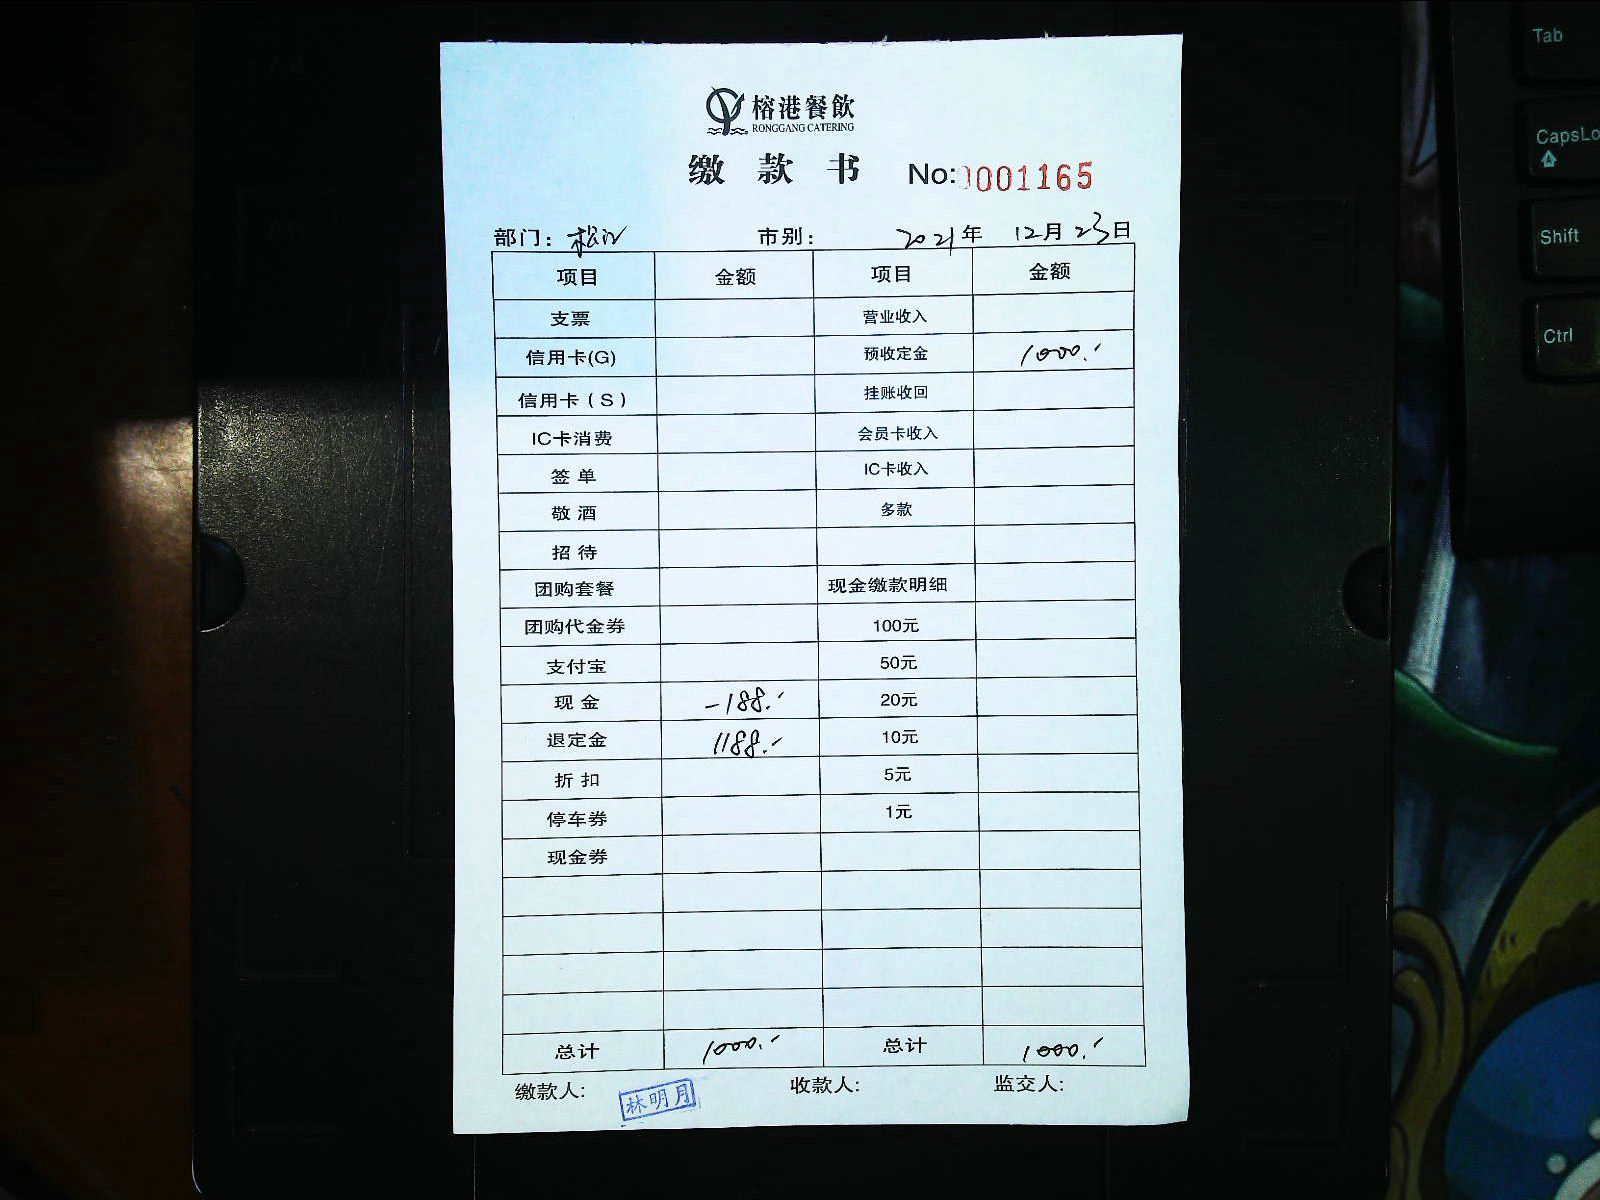 榕港餐飲
RONGGANG CATERING
缴款书 No:0001165
部门：松江 市别： 2021年 12月23日
项目 金额 项目 金额
支票 营业收入
信用卡(G) 预收定金 1000.-
信用卡（S） 挂账收回
IC卡消费 会员卡收入
签单 IC卡收入
敬酒 多款
招待
团购套餐 现金缴款明细
团购代金券 100元
支付宝 50元
现金 -188.- 20元
退定金 1188.- 10元
折扣 5元
停车券 1元
现金券
总计 1000.- 总计 1000.-
缴款人: 林明月 收款人: 监交人:
Tab
CapsLo
Shift
Ctrl